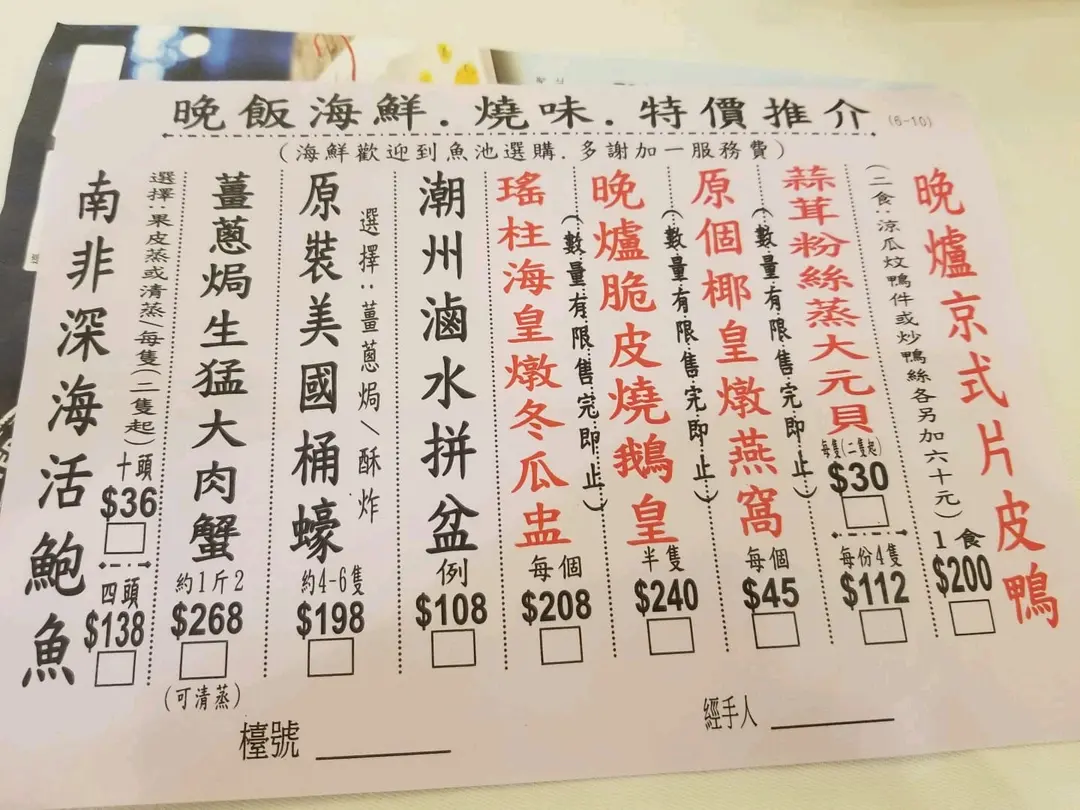 晚飯海鮮.燒味.特價推介 (6-10)
(海鮮歡迎到魚池選購.多謝加一服務費)
晚爐京式片皮鴨
(二食:涼瓜炆鴨件或炒鴨絲各另加六十元)
1食
$200
蒜茸粉絲蒸大元貝
每隻(二隻起)
$30
每份4隻
$112
原個椰皇燉燕窩
(數量有限售完即止)
每個
$45
晚爐脆皮燒鵝皇
(數量有限售完即止)
半隻
$240
瑤柱海皇燉冬瓜盅
(數量有限售完即止)
每個
$208
潮州滷水拼盆
例
$108
原裝美國桶蠔
選擇:薑蔥焗/酥炸
約4-6隻
$198
薑蔥焗生猛大肉蟹
約1斤2
$268
(可清蒸)
南非深海活鮑魚
選擇:果皮蒸或清蒸/每隻(二隻起)
十頭
$36
四頭
$138
檯號
經手人